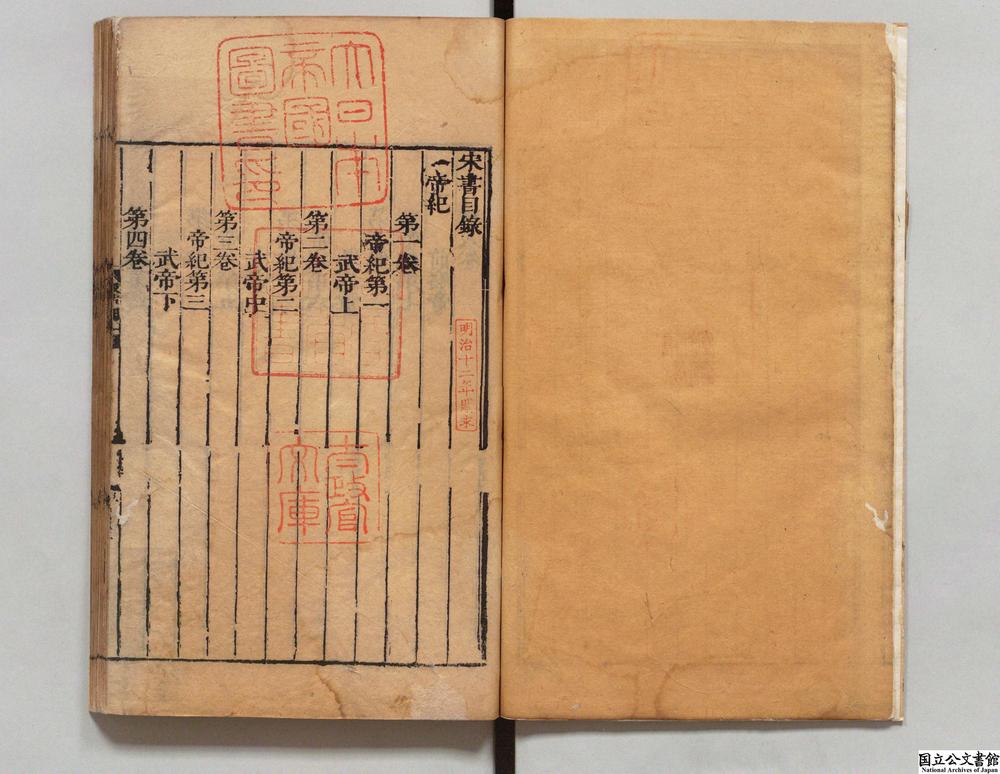 宋書目錄
帝紀
第一卷
帝紀第一
武帝上
第二卷
帝紀第二
武帝中
第三卷
帝紀第三
武帝下
第四卷
大日本
帝國
圖書印
明治十二年購求
太政官
文庫
国立公文書館
National Archives of Japan